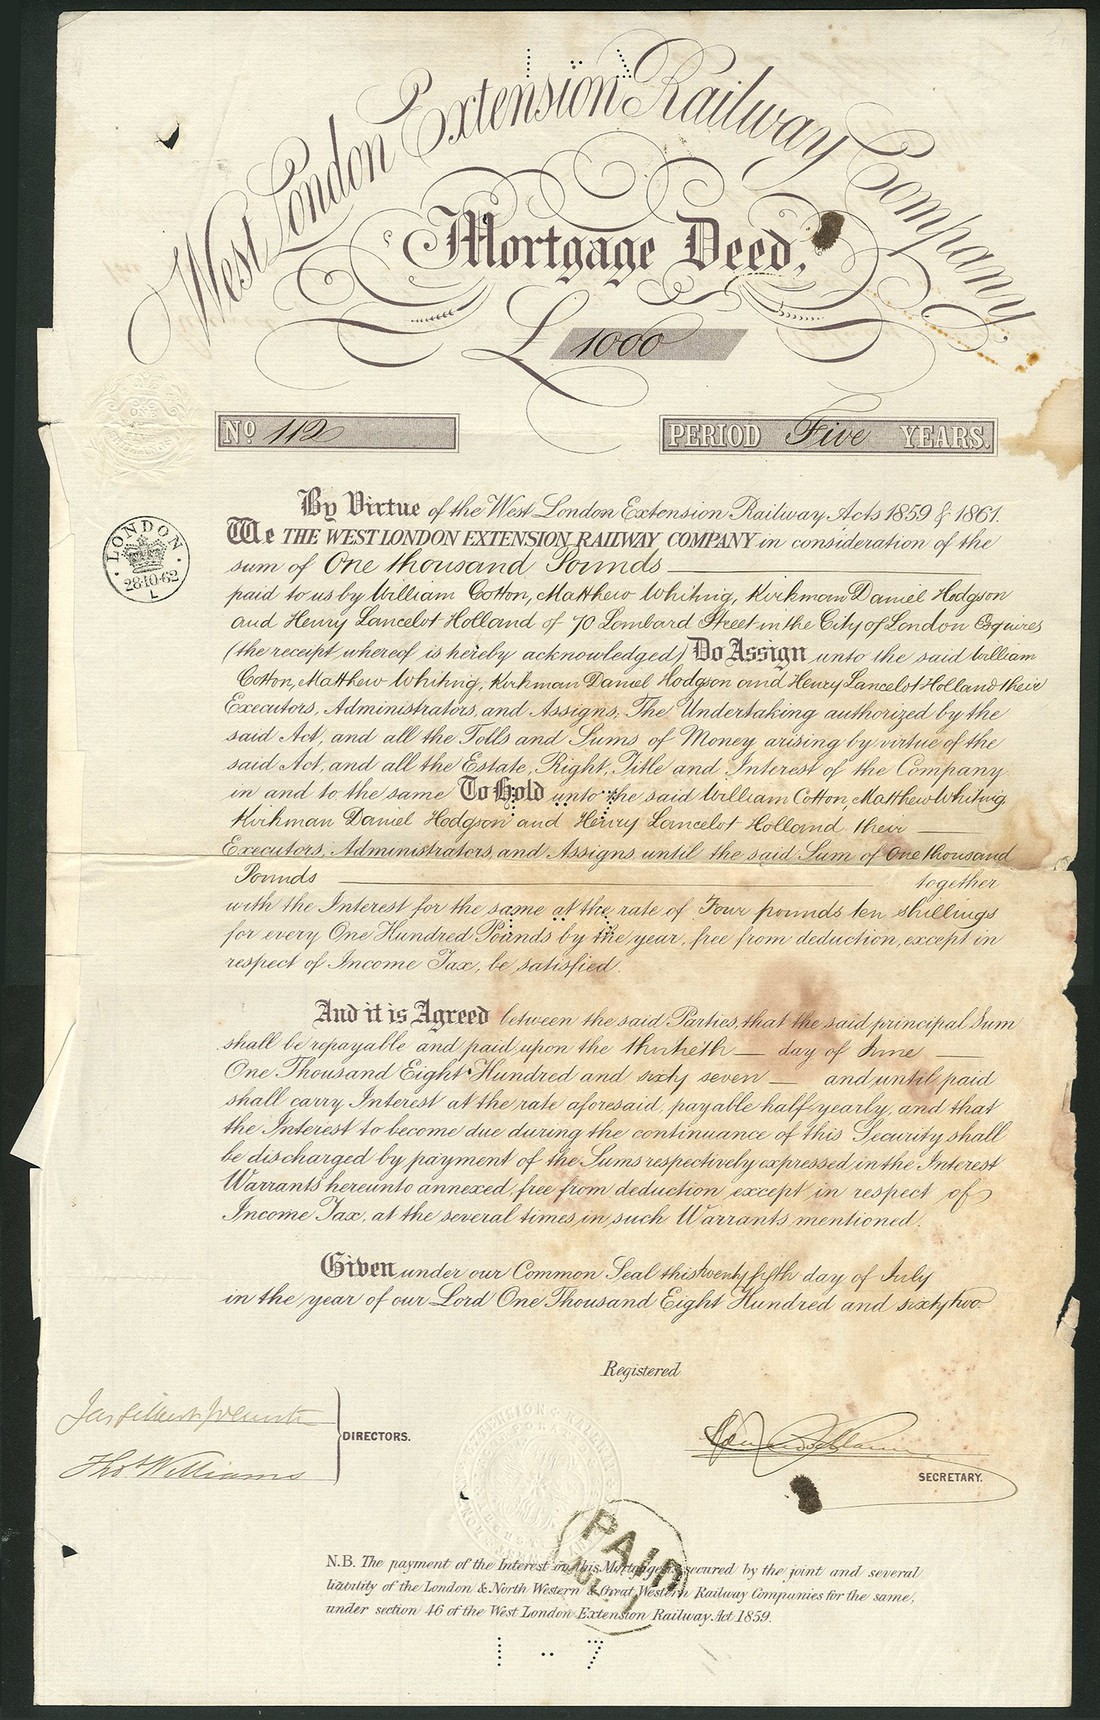 West London Extension Railway Company.
Mortgage Deed,
£ 1000
No 112
PERIOD Five YEARS.
LONDON
28·10·62
L
By Virtue of the West London Extension Railway Acts 1859 & 1861.
We THE WEST LONDON EXTENSION RAILWAY COMPANY in consideration of the
sum of One thousand Pounds
paid to us by William Cotton, Matthew Whiting, Kirkman Daniel Hodgson
and Henry Lancelot Holland of 70 Lombard Street in the City of London Esquires
(the receipt whereof is hereby acknowledged) Do Assign unto the said William
Cotton, Matthew Whiting, Kirkman Daniel Hodgson and Henry Lancelot Holland their
Executors, Administrators, and Assigns, The Undertaking authorized by the
said Act, and all the Tolls and Sums of Money arising by virtue of the
said Act, and all the Estate, Right, Title and Interest of the Company
in and to the same To Hold unto the said William Cotton, Matthew Whiting
Kirkman Daniel Hodgson and Henry Lancelot Holland their
Executors, Administrators, and Assigns until the said Sum of One thousand
Pounds together
with the Interest for the same at the rate of Four pounds ten shillings
for every One Hundred Pounds by the year, free from deduction, except in
respect of Income Tax, be satisfied.
And it is Agreed between the said Parties, that the said principal Sum
shall be repayable and paid upon the thirtieth day of June
One Thousand Eight Hundred and sixty seven and until paid
shall carry Interest at the rate aforesaid, payable half-yearly, and that
the Interest to become due during the continuance of this Security shall
be discharged by payment of the Sums respectively expressed in the Interest
Warrants hereunto annexed, free from deduction, except in respect of
Income Tax, at the several times in such Warrants mentioned.
Given under our Common Seal this twenty fifth day of July
in the year of our Lord One Thousand Eight Hundred and sixty two
Registered
Thos Williams
DIRECTORS.
SECRETARY.
PAID
N.B. The payment of the Interest on this Mortgage is secured by the joint and several
liability of the London & North Western & Great Western Railway Companies for the same,
under section 46 of the West London Extension Railway Act 1859.